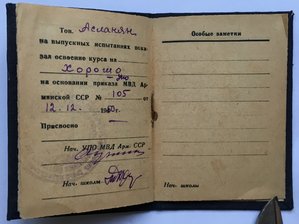 Тов. Асланян
на выпускных испытаниях пока-
зал освоение курса на
Хорошо
на основании приказа МВД Ар-
мянской ССР № 105 от
12.12.1950г.
Присвоено
Нач. УПО МВД Арм. ССР
Нач. школы
Особые заметки
Нач. школы